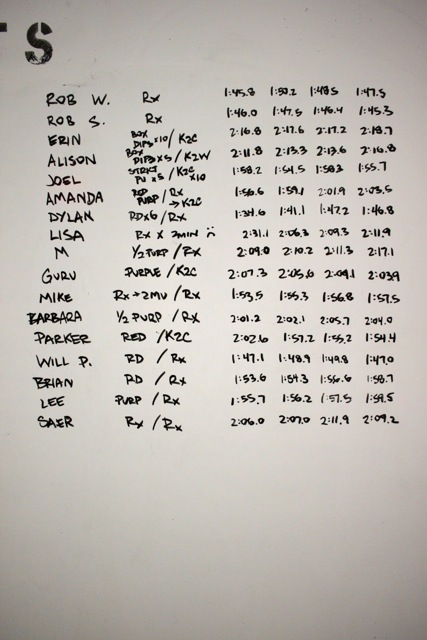 TS
ROB W. Rx 1:45.8 1:50.2 1:48.5 1:47.5
ROB S. Rx 1:46.0 1:47.5 1:46.4 1:45.3
ERIN BOX DIPS x10/K2C 2:16.8 2:17.6 2:17.2 2:18.7
ALISON BOX DIPS x5/K2W 2:11.8 2:13.3 2:13.6 2:16.8
JOEL STRICT PU x5/K2C x10 1:58.2 1:54.5 1:55.7
AMANDA RED PURP/Rx → K2C 1:56.6 1:59.1 2:01.9 2:03.5
DYLAN RD x6/Rx 1:41.1 1:47.2 1:46.8
LISA Rx x 2MIN :( 2:31.1 2:06.3 2:09.3 2:11.9
M 1/2 PURP/Rx 2:09.0 2:10.2 2:11.3 2:17.1
GURU PURPLE/K2C 2:07.3 2:05.6 2:04.1 2:03.9
MIKE Rx→2MU/Rx 1:53.5 1:55.3 1:56.8 1:57.5
BARBARA 1/2 PURP/Rx 2:01.2 2:02.1 2:05.7 2:04.0
PARKER RED/K2C 2:02.6 1:57.2 1:55.2 1:54.4
WILL P. RD/Rx 1:47.1 1:48.9 1:49.8 1:47.0
BRIAN RD/Rx 1:53.6 1:54.3 1:56.6 1:58.7
LEE PURP/Rx 1:55.7 1:56.2 1:57.5 1:59.5
SAER Rx/Rx 2:06.0 2:07.0 2:11.9 2:09.2